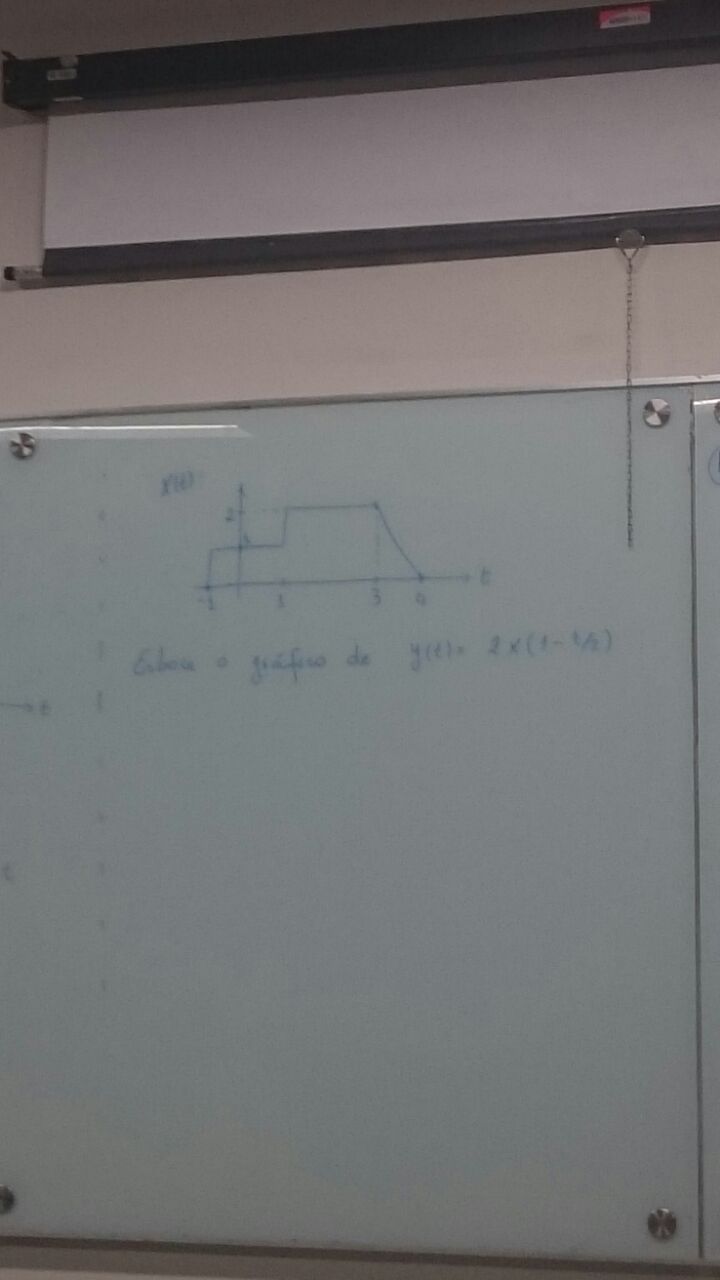 x(t)
2
1
t
-1 1 3 4
Esboce o gráfico de y(t) = 2x(1 - t/2)
t
t